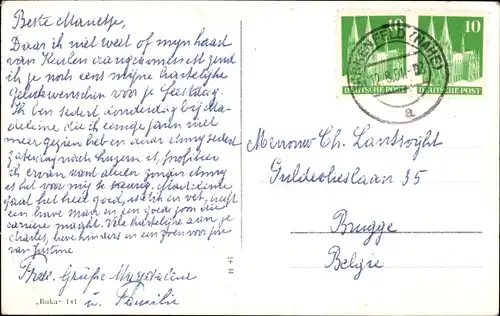 Beste Marietje,
Daar ik niet weet of mijn kaart
van Keulen aangekomen is zend
ik je nog eens mijne hartelijke
Gelukwenschen voor je feestdag.
Ik ben sedert donderdag bij Ma-
deleine die ik eenige jaren niet
meer gezien heb en daar Jimmy sedert
Zaterdag naar Luzern is, profiteer
ik ervan want alleen zonder Jimmy
is het voor mij te Madeleine
gaat het heel goed, is dik en vet, heeft
een brave man en een goede zoon die
carrière maakt. Vele hartelijke aan je
Charles, lieve kinders en een zoen voor jou
van Justine
Frdl. Grüße Magdalena
u. Familie
"Buka" 141
H 41
BIRKENFELD (NAHE)
a
10
10
DEUTSCHE POST
DEUTSCHE POST
Mevrouw Ch. Lantsoght
Guldenvlieslaan 35
Brugge
Belgie